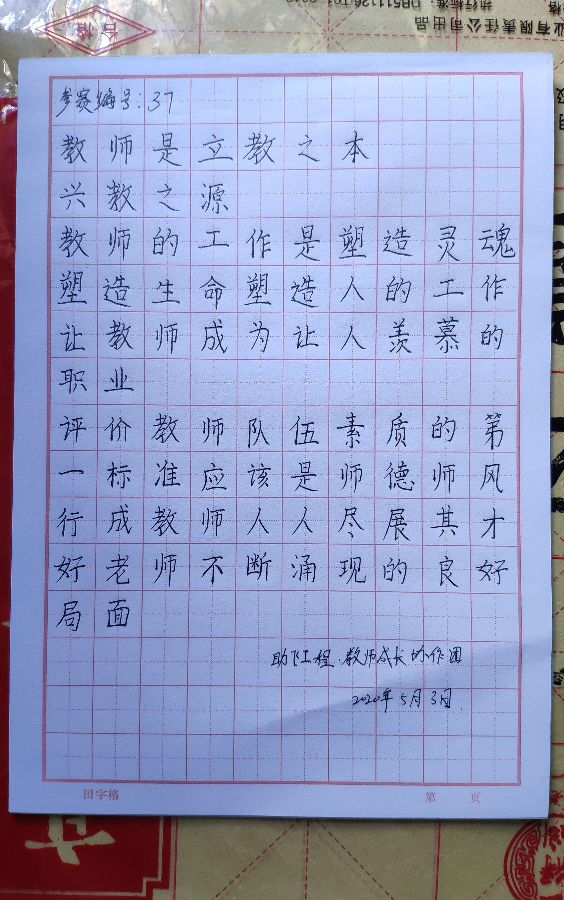 业有限责任公司出品
合格
参赛编号:37
教师是立教之本
兴教之源
教师的工作是塑造灵魂
塑造生命塑造人的工作
让教师成为让人羡慕的
职业
评价教师队伍素质的第
一标准应该是师德师风
行成教师人人尽展其才
好老师不断涌现的良好
局面
助飞工程 教师成长协作团
2020年5月3日
田字格
第 页